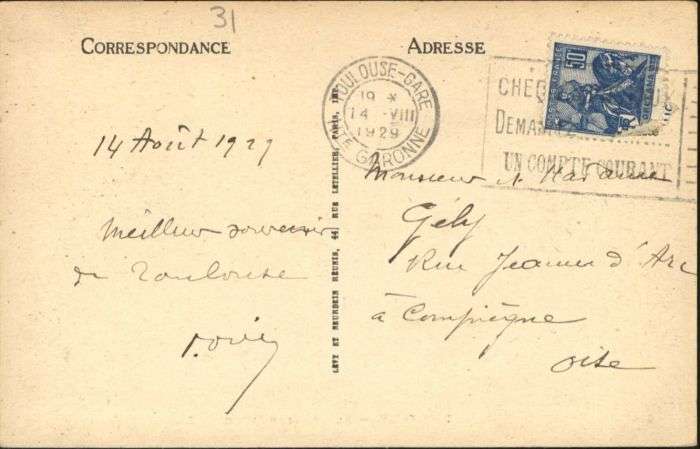 31
CORRESPONDANCE
ADRESSE
TOULOUSE-GARE
19 *
14 -VIII
1929
HTE GARONNE
50
CHEQ
DEMAN
UN COMPTE COURANT
14 Août 1929
Meilleur souvenir
de Toulouse
LEVY ET NEURDEIN RÉUNIS, 44 RUE LETELLIER, PARIS, IMP.
Monsieur & Madame
Gély
Rue Jeanne d'Arc
à Compiègne
Oise